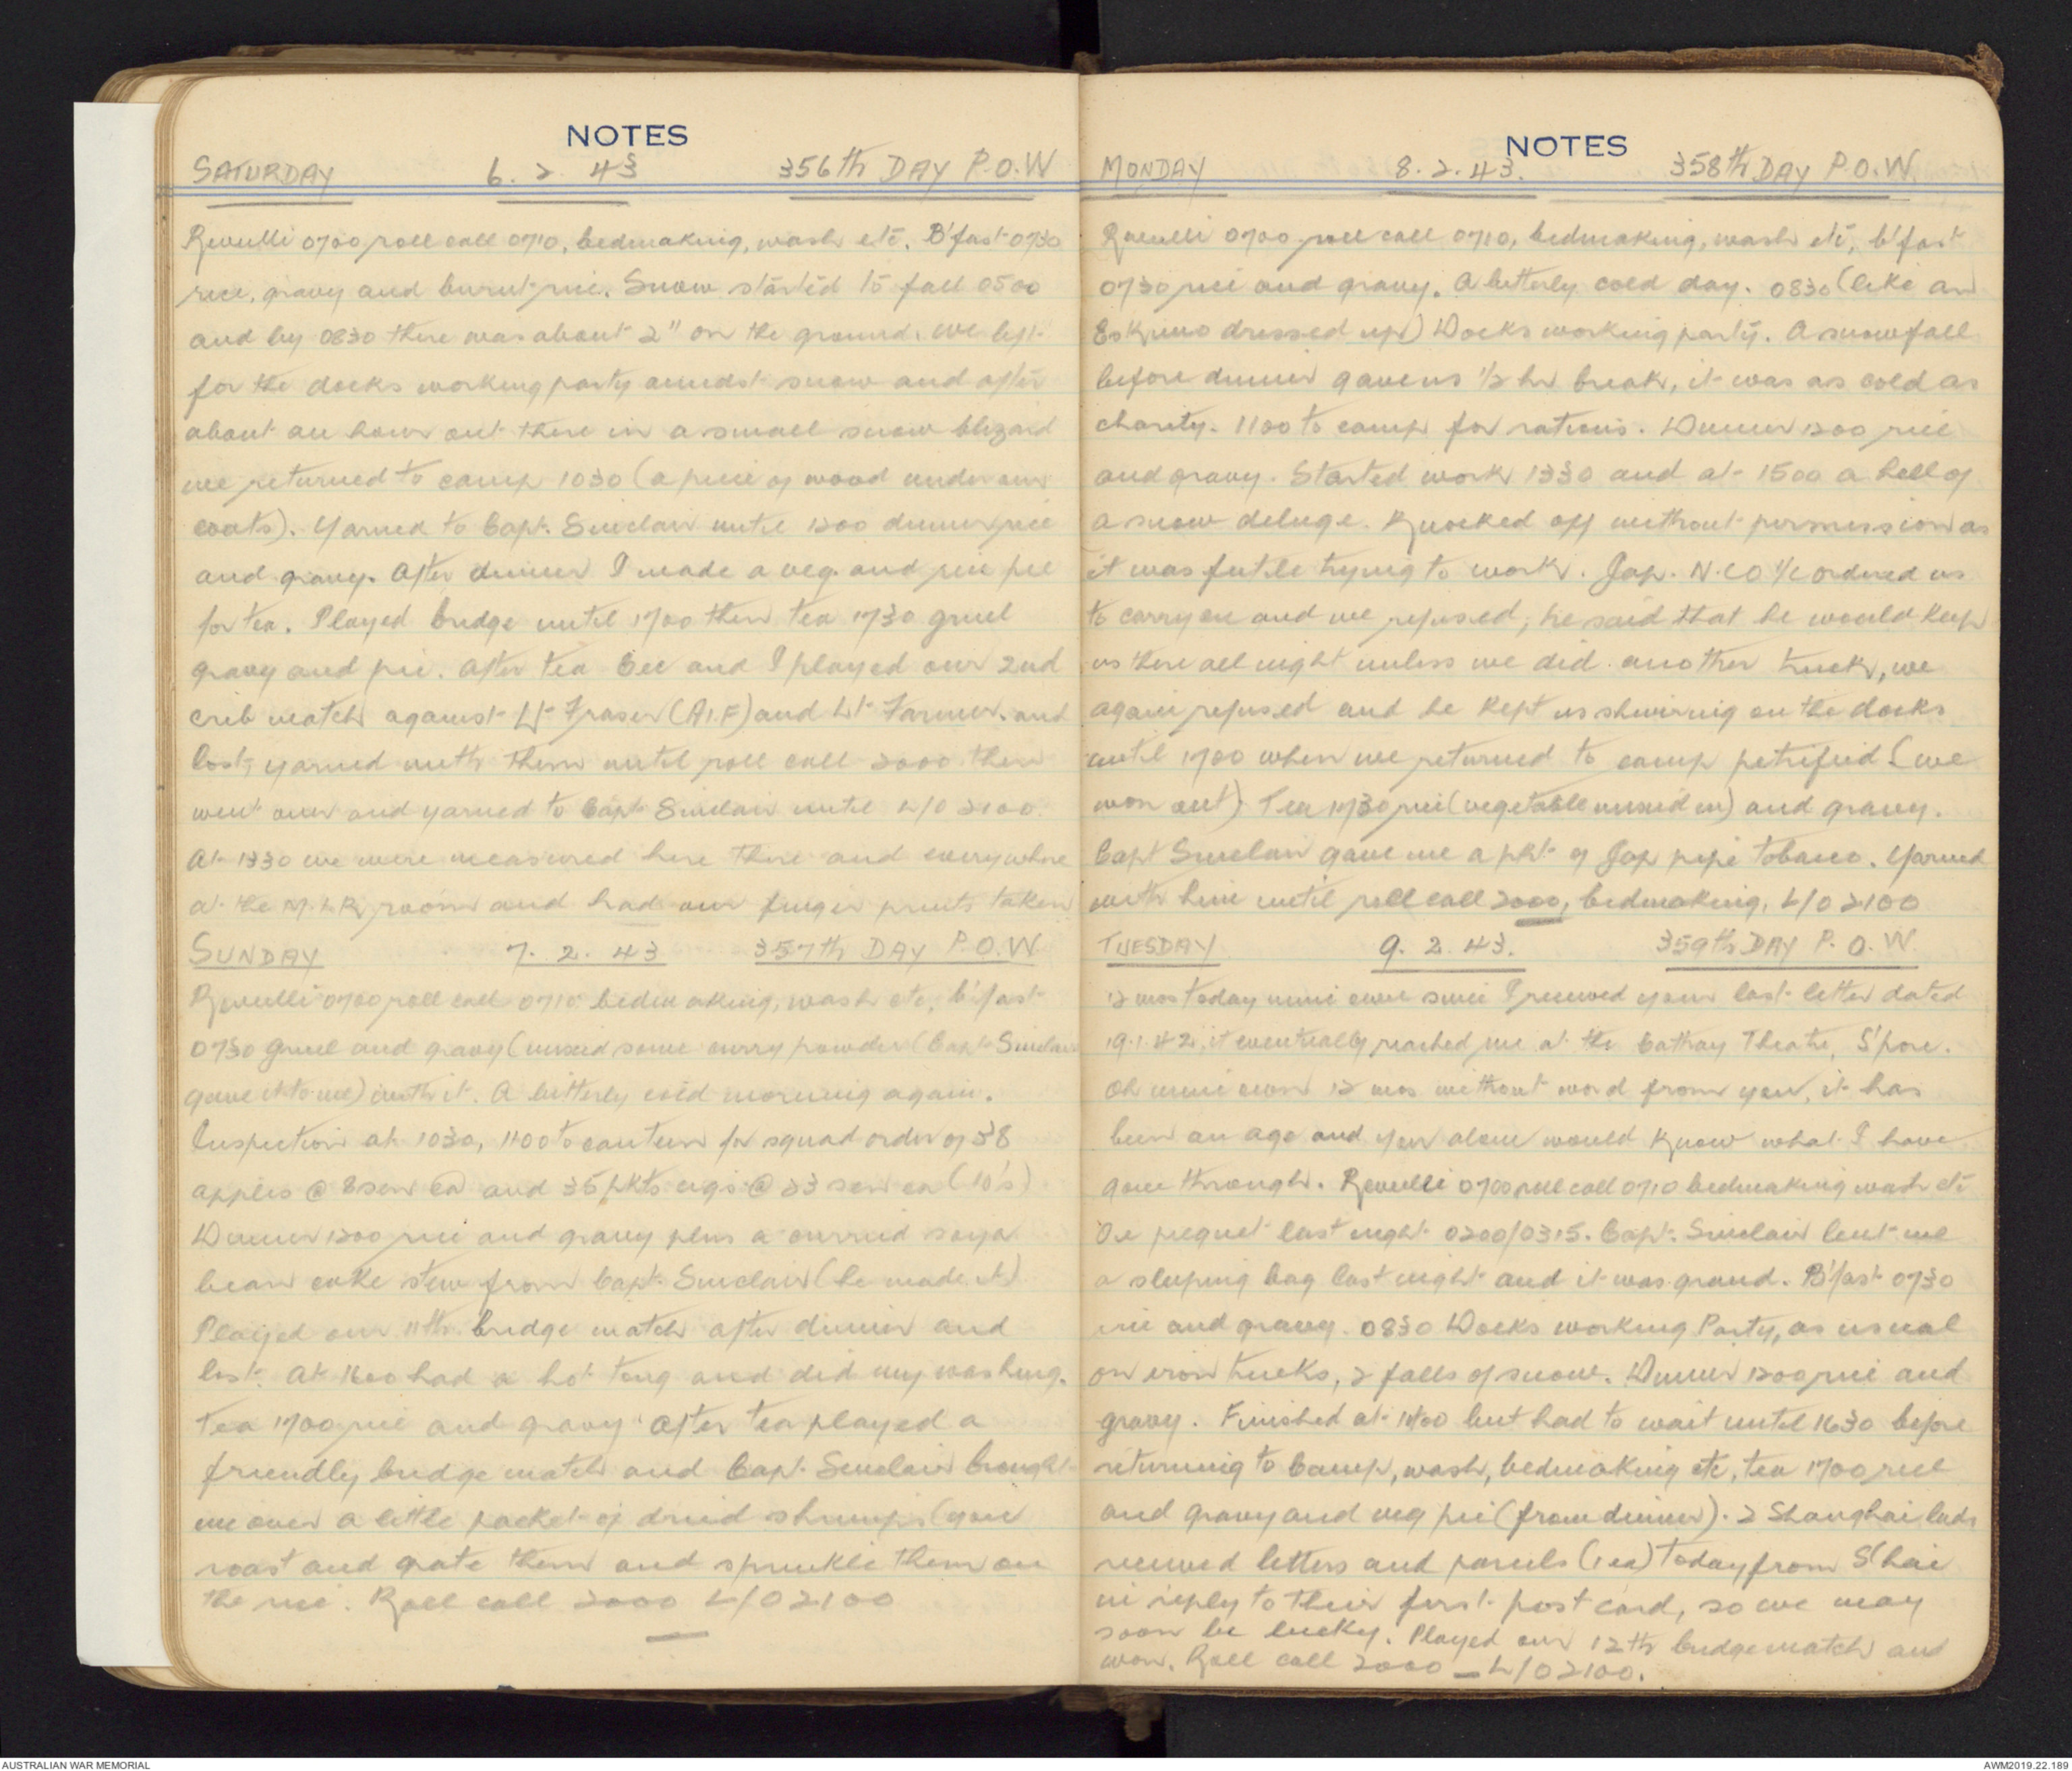 NOTES
SATURDAY 6. 2. 43 356th DAY P.O.W
Reveilli 0700 roll call 0710, bedmaking, wash etc. B'fast 0730
rice, gravy and burnt rice. Snow started to fall 0500
and by 0830 there was about 2" on the ground. We left
for the docks working party amidst snow and after
about an hour out there in a small snow blizard
we returned to camp 1030 (a piece of wood under our
coats). Yarned to Capt. Sinclair until 1200 dinner rice
and gravy. After dinner I made a veg. and rice pie
for tea. Played bridge until 1700 then tea 1730 gruel
gravy and pie. After tea Cec and I played our 2nd
crib match against Lt Fraser (AIF) and Lt Farmer, and
lost, yarned with them until roll call 2000 then
went over and yarned to Capt Sinclair until L/O 2100.
At 1330 we were measured here there and everywhere
at the room and had our finger prints taken
SUNDAY 7. 2. 43 357th DAY P.O.W
Reveilli 0700 roll call 0710 bedmaking, wash etc, b'fast
0730 gruel and gravy (mixed some curry powder (Capt Sinclair
gave it to me) with it. A bitterly cold morning again.
Inspection at 1030, 1100 to canteen for squad order of 38
apples @ 8 sen ea and 35 pkts cigs @ 23 sen ea (10's)
Dinner 1200 rice and gravy plus a curried soya
bean cake stew from Capt. Sinclair (he made it)
Played our 11th bridge match after dinner and
lost. At 1600 had a hot tong and did my washing.
Tea 1700 rice and gravy. After tea played a
friendly bridge match and Capt. Sinclair brought
me over a little packet of dried shrimps (you
roast and grate them and sprinkle them on
the rice. Roll call 2000 L/O 2100
NOTES
MONDAY 8. 2. 43. 358th DAY P.O.W.
Reveilli 0700 roll call 0710, bedmaking, wash etc, b'fast
0730 rice and gravy. A bitterly cold day. 0830 (like an
Eskimo dressed up) Docks working party. A snowfall
before dinner gave us ½ hr break, it was as cold as
charity. 1100 to camp for rations. Dinner 1200 rice
and gravy. Started work 1330 and at 1500 a hell of
a snow deluge. Knocked off without permission as
it was futile trying to work. Jap. N.C.O i/c ordered us
to carry on and we refused, he said that he would keep
us there all night unless we did another truck, we
again refused and he kept us shivering on the docks
until 1700 when we returned to camp petrified (we
won out) Tea 1730 rice (vegetable mixed in) and gravy.
Capt Sinclair gave me a pkt of Jap pipe tobacco. Yarned
with him until roll call 2000, bedmaking, L/O 2100
TUESDAY 9. 2. 43. 359th DAY P. O. W.
12 mos today mine own since I received your last letter dated
19.1.42, it eventually reached me at the Cathay Theatre, S'pore.
Oh mine own 12 mos without word from you, it has
been an age and you alone would know what I have
gone through. Reveilli 0700 roll call 0710 bedmaking wash etc
On picquet last night 0200/0315. Capt. Sinclair lent me
a sleeping bag last night and it was grand. B'fast 0730
rice and gravy. 0830 Docks working Party, as usual
on iron trucks, 2 falls of snow. Dinner 1200 rice and
gravy. Finished at 1400 but had to wait until 1630 before
returning to Camp, wash, bedmaking etc, tea 1700 rice
and gravy and veg pie (from dinner). 2 Shanghai lads
received letters and parcels (1 ea) today from S'hai
in reply to their first post card, so we may
soon be lucky. Played our 12th bridge match and
won. Roll call 2000 - L/O 2100.
AUSTRALIAN WAR MEMORIAL
AWM2019.22.189